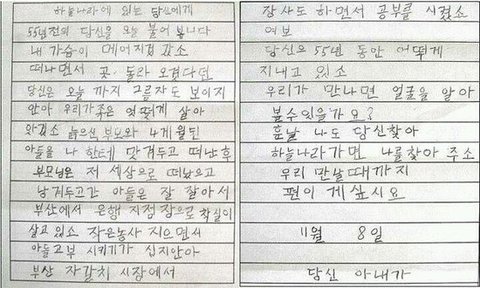 하늘나라에 있는 당신에게
55년전의 당신을 오늘 불어 봅니다
내 가슴이 메어지것 같소
떠나면서 곳, 돌라 오겠다던
당신은 오늘 까지 그름자도 보이지
안아 우리가족은 엇떻게 살아
왔겠소 늙으신 부모와 4개월된
아들을 나 한테 맛겨두고 떠난후
부모님은 저 세상으로 떠났으고
남겨두고간 아들은 잘 잘아서
부산에서 은행 지점장으로 착실이
살고 있소 작은농사 지으면서
아들고부 시키기가 십지안아
부산 자갈치 시장에서
장사도 하면서 공부를 시켰소
여보
당신은 55년 동안 어떻게
지내고 있소
우리가 만나면 얼굴을 알아
볼수있을가요?
훗날 나도 당신찾아
하늘나라가면 나를찾아 주소
우리 만날때까지
편이 게싶시요
11월 8일
당신 아내가